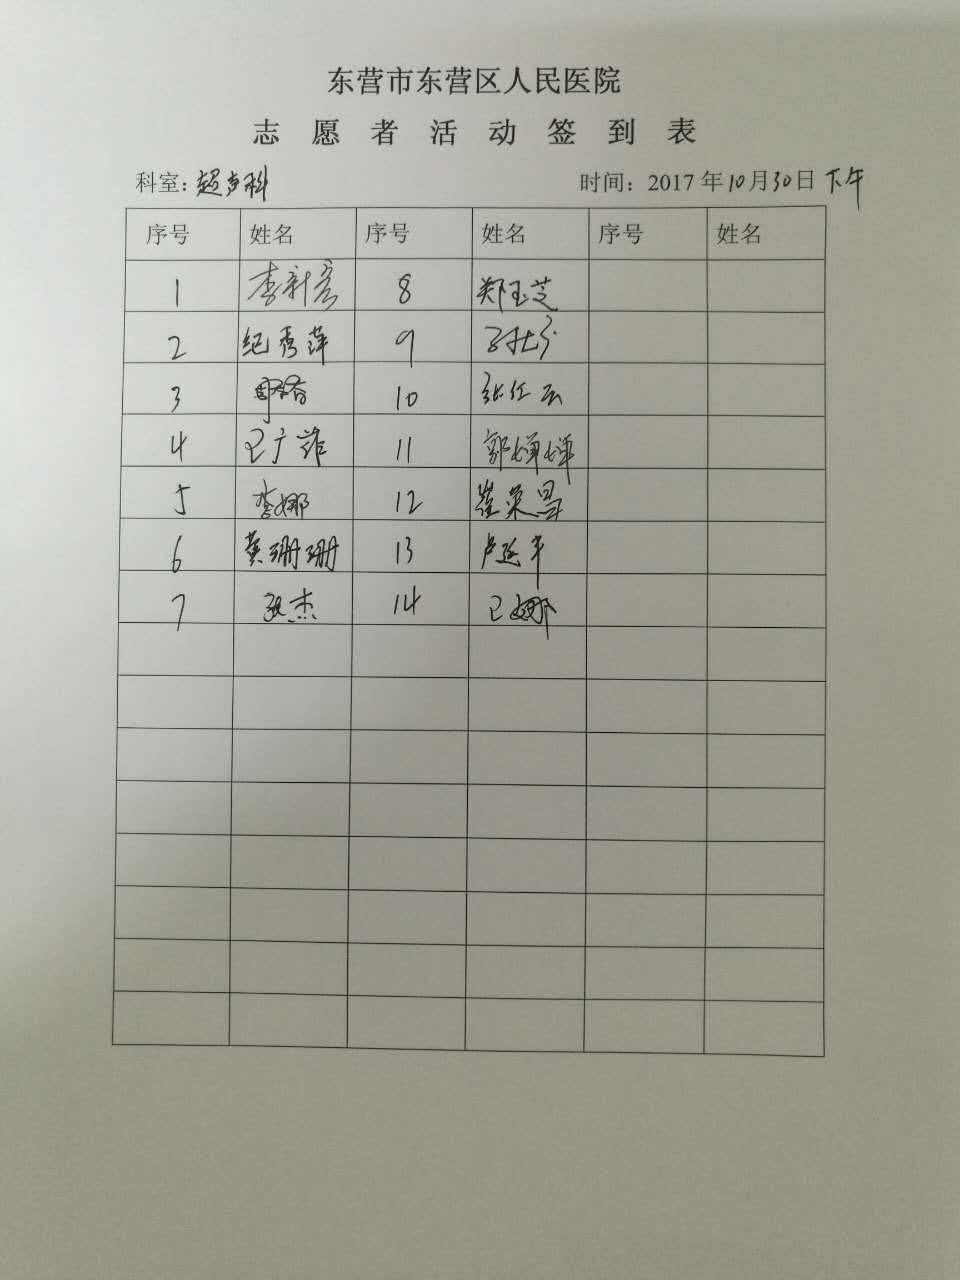 东营市东营区人民医院
志愿者活动签到表
科室：超声科 时间：2017年10月30日下午
序号 姓名 序号 姓名 序号 姓名
1 李新宏 8 郑玉芝
2 纪秀萍 9
3 10 张红云
4 11 郭婵婵
5 李娜 12 崔英昌
6 龚珊珊 13 卢延平
7 张杰 14 王娜